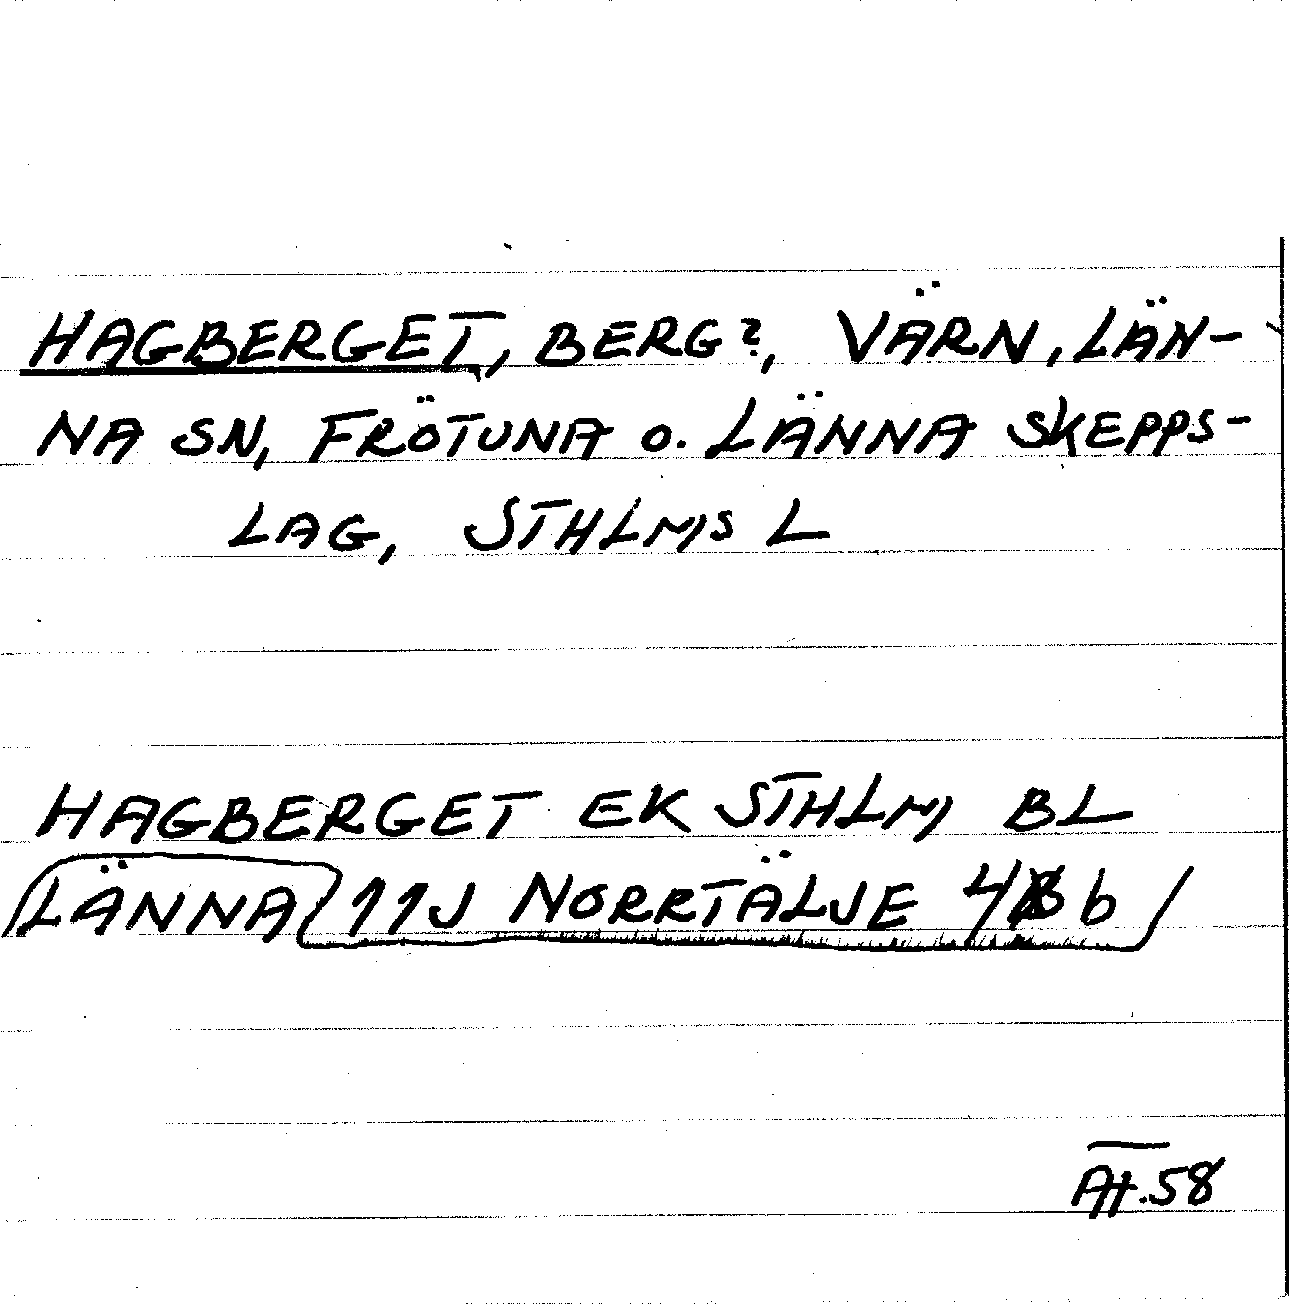 HAGBERGET, BERG?, VÄRN, LÄN-
NA SN, FRÖTUNA O. LÄNNA SKEPPS-
LAG, STHLMS L
HAGBERGET EK STHLM, BL
LÄNNA 11J NORRTÄLJE 4 b
58